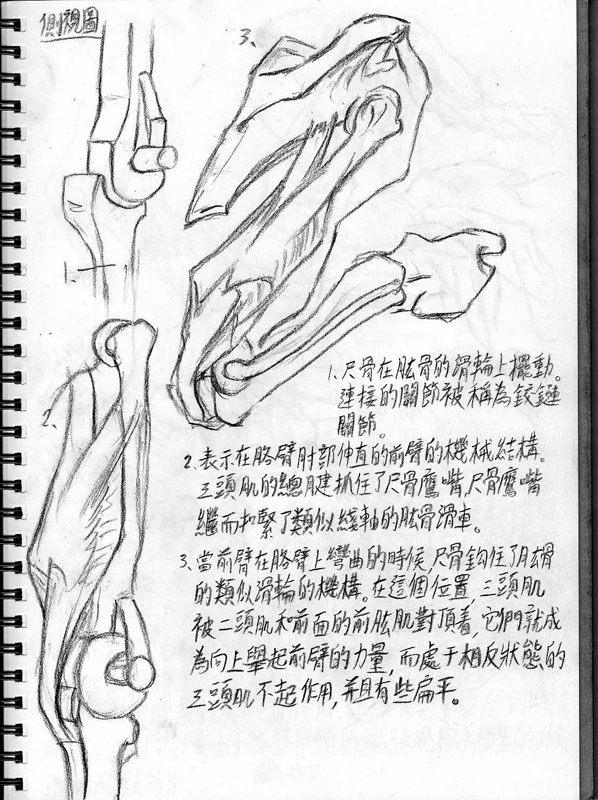 側視圖
3、
1.
2.
1、尺骨在肱骨的滑輪上擺動。
連接的關節被稱為鉸鏈
關節。
2.表示在胳臂肘部伸直的前臂的機械結構。
三頭肌的總腱抓住了尺骨鷹嘴,尺骨鷹嘴
繼而扣緊了類似綫軸的肱骨滑車。
3、當前臂在胳臂上彎曲的時候,尺骨鈎住了肱骨
的類似滑輪的機構。在這個位置,三頭肌
被二頭肌和前面的前肱肌對頂着,它們就成
為向上舉起前臂的力量,而處于相反狀態的
三頭肌不起作用,并且有些扁平。